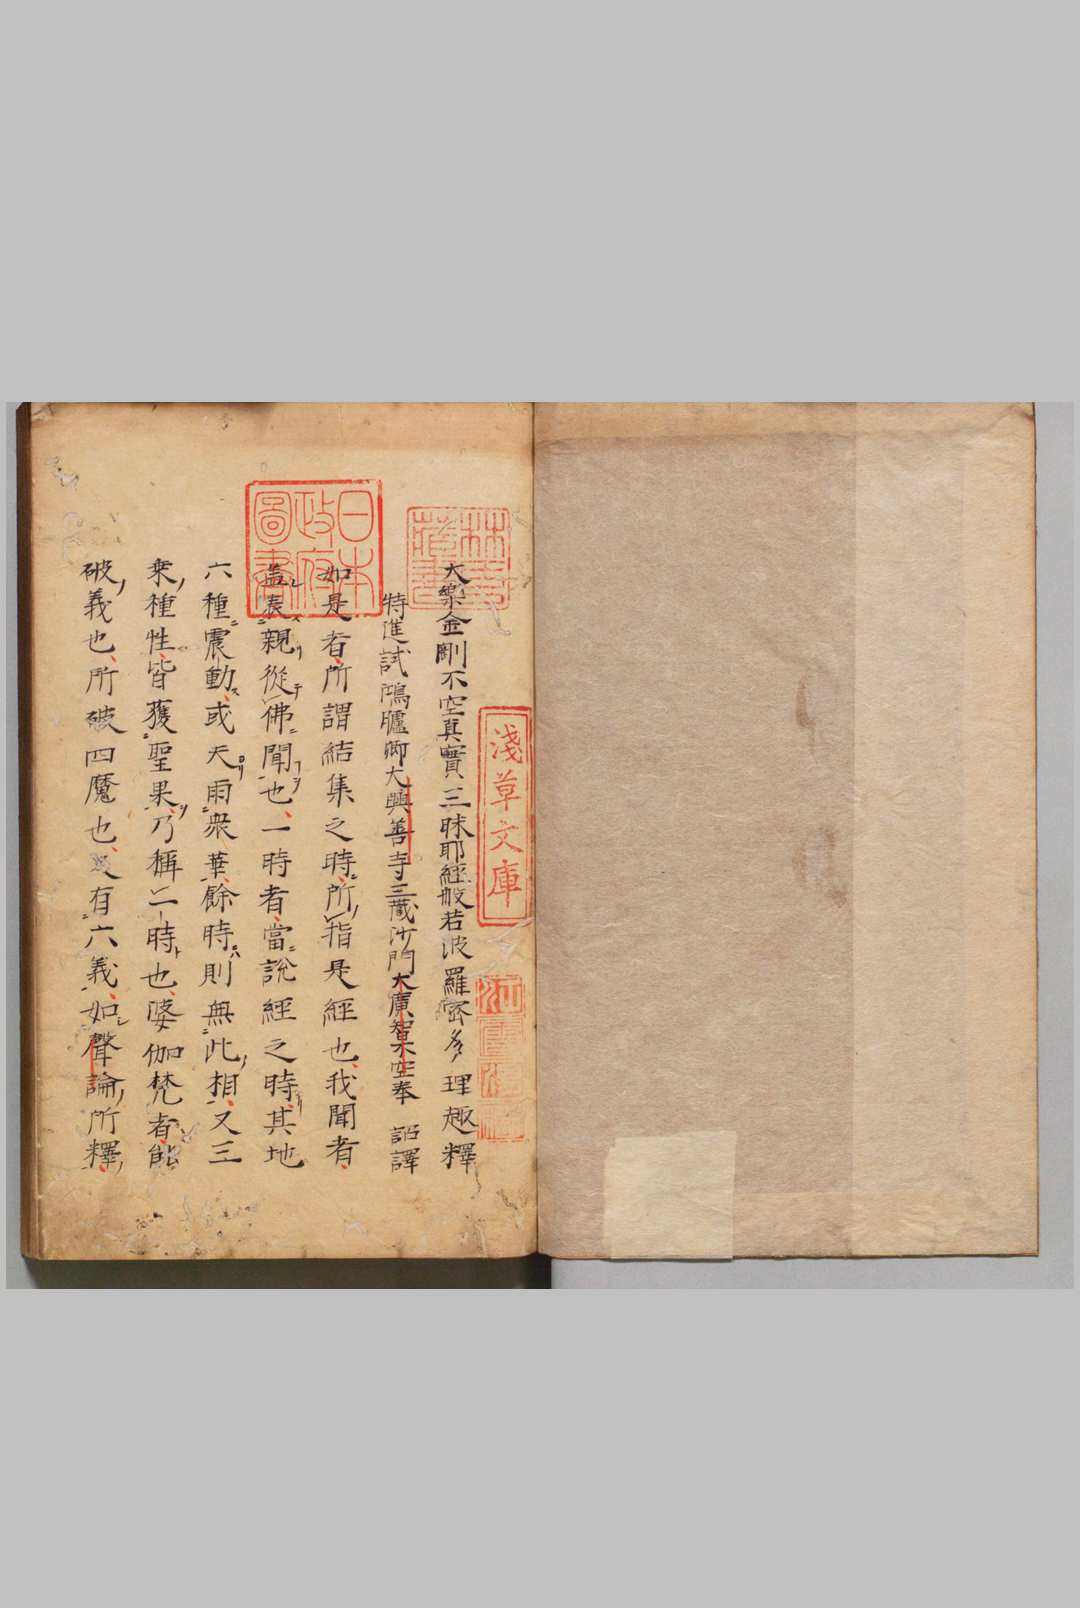 大樂金剛不空真實三昧耶經般若波羅蜜多理趣釋
特進試鴻臚卿大興善寺三藏沙門大廣智不空奉 詔譯
如是者所謂結集之時所指是經也我聞者
盖表親從佛聞也一時者當說經之時其地
六種震動或天雨衆華餘時則無此相又三
乘種性皆獲聖果乃稱一時也婆伽梵者能
破義也所破四魔也又有六義如聲論所釋
淺草文庫
林氏藏書
日本政府圖書